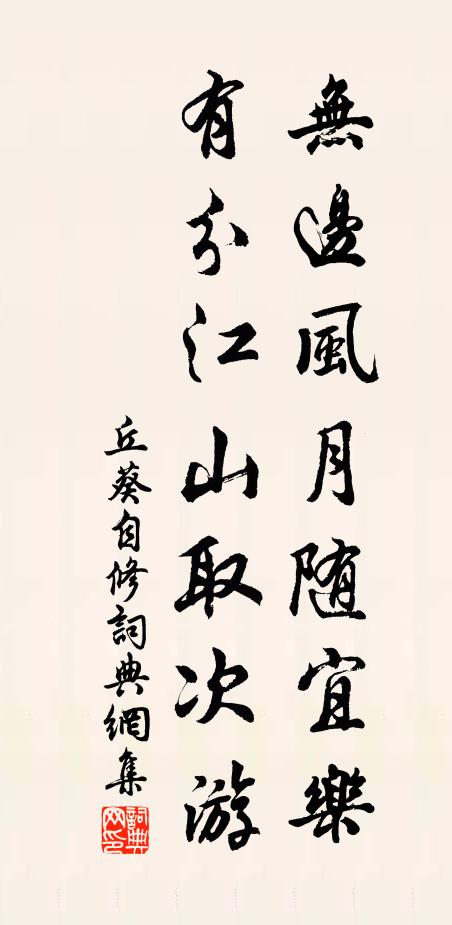 無邊風月随宜樂
有分江山取次游
丘葵自修詞典網集
詞典網印